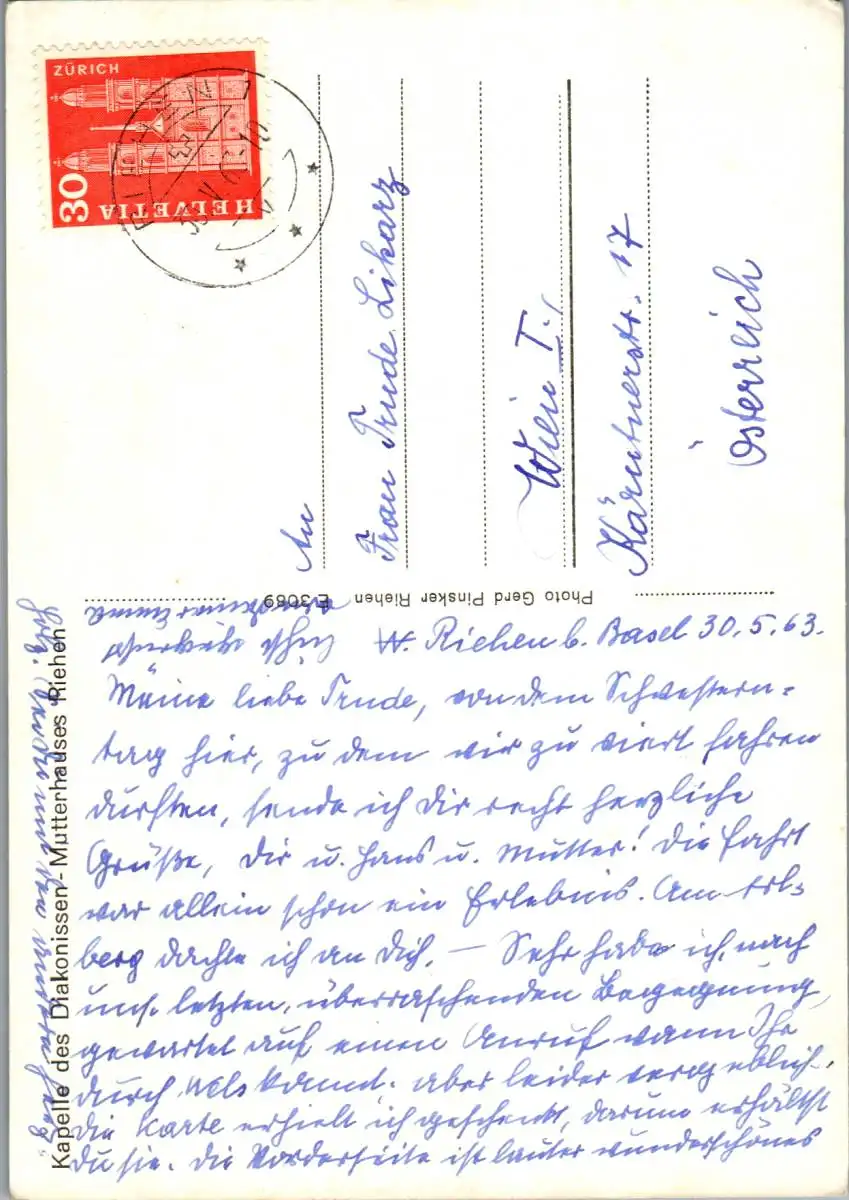 ZÜRICH
30
HELVETIA
RIEHEN 1
An
Frau Trude Likarz
Wien I.,
Kärntnerstr. 17
Österreich
Photo Gerd Pinsker Riehen E 3089
Kapelle des Diakonissen-Mutterhauses Riehen
Riehen b. Basel 30.5.63.
Meine liebe Trude, von dem Schwestern-
tag hier, zu dem wir zu viert fahren
durften, sende ich Dir recht herzliche
Grüße, Dir u. Hans u. Mutter! Die Fahrt
war allein schon ein Erlebnis. Am Arl-
berg dachte ich an Dich. – Sehr habe ich, nach
uns. letzten, überraschenden Begegnung,
gewartet auf einen Anruf wann Ihr
durch Wels kommt. aber leider vergeblich.
Die Karte erhielt ich geschenkt, darum erhältst
Du sie. Die Vorderseite ist lauter wunderschönes